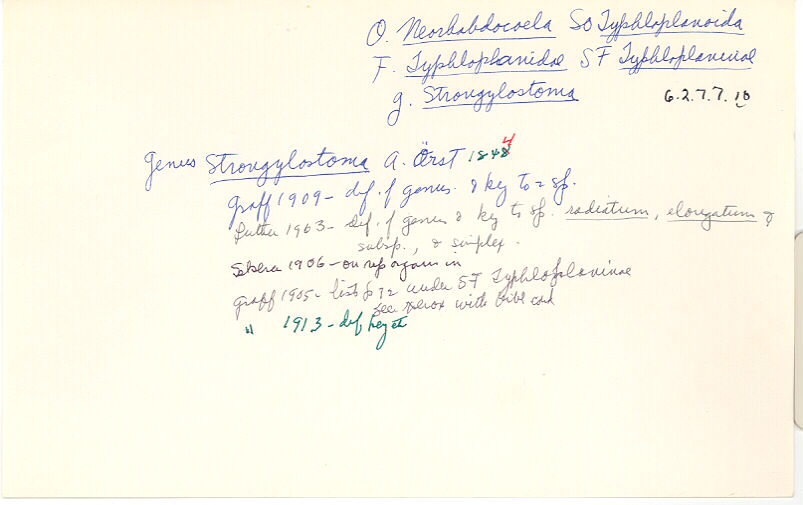 O. Neorhabdocoela SO Typhloplanoida
F. Typhloplanidae SF Typhloplaninae
g. Strongylostoma 6.2.7.7.10
Genus Strongylostoma A. Örst 1848 4
Graff 1909 - def. of genus. & key to 2 sp.
Luther 1963 - def. of genus & key to sp. radiatum, elongatum &
subsp., & simplex.
Sekera 1906 - on rep organ in
Graff 1905 - lists p 32 under SF Typhloplaninae
see xerox with bibl card
" 1913 - def key etc